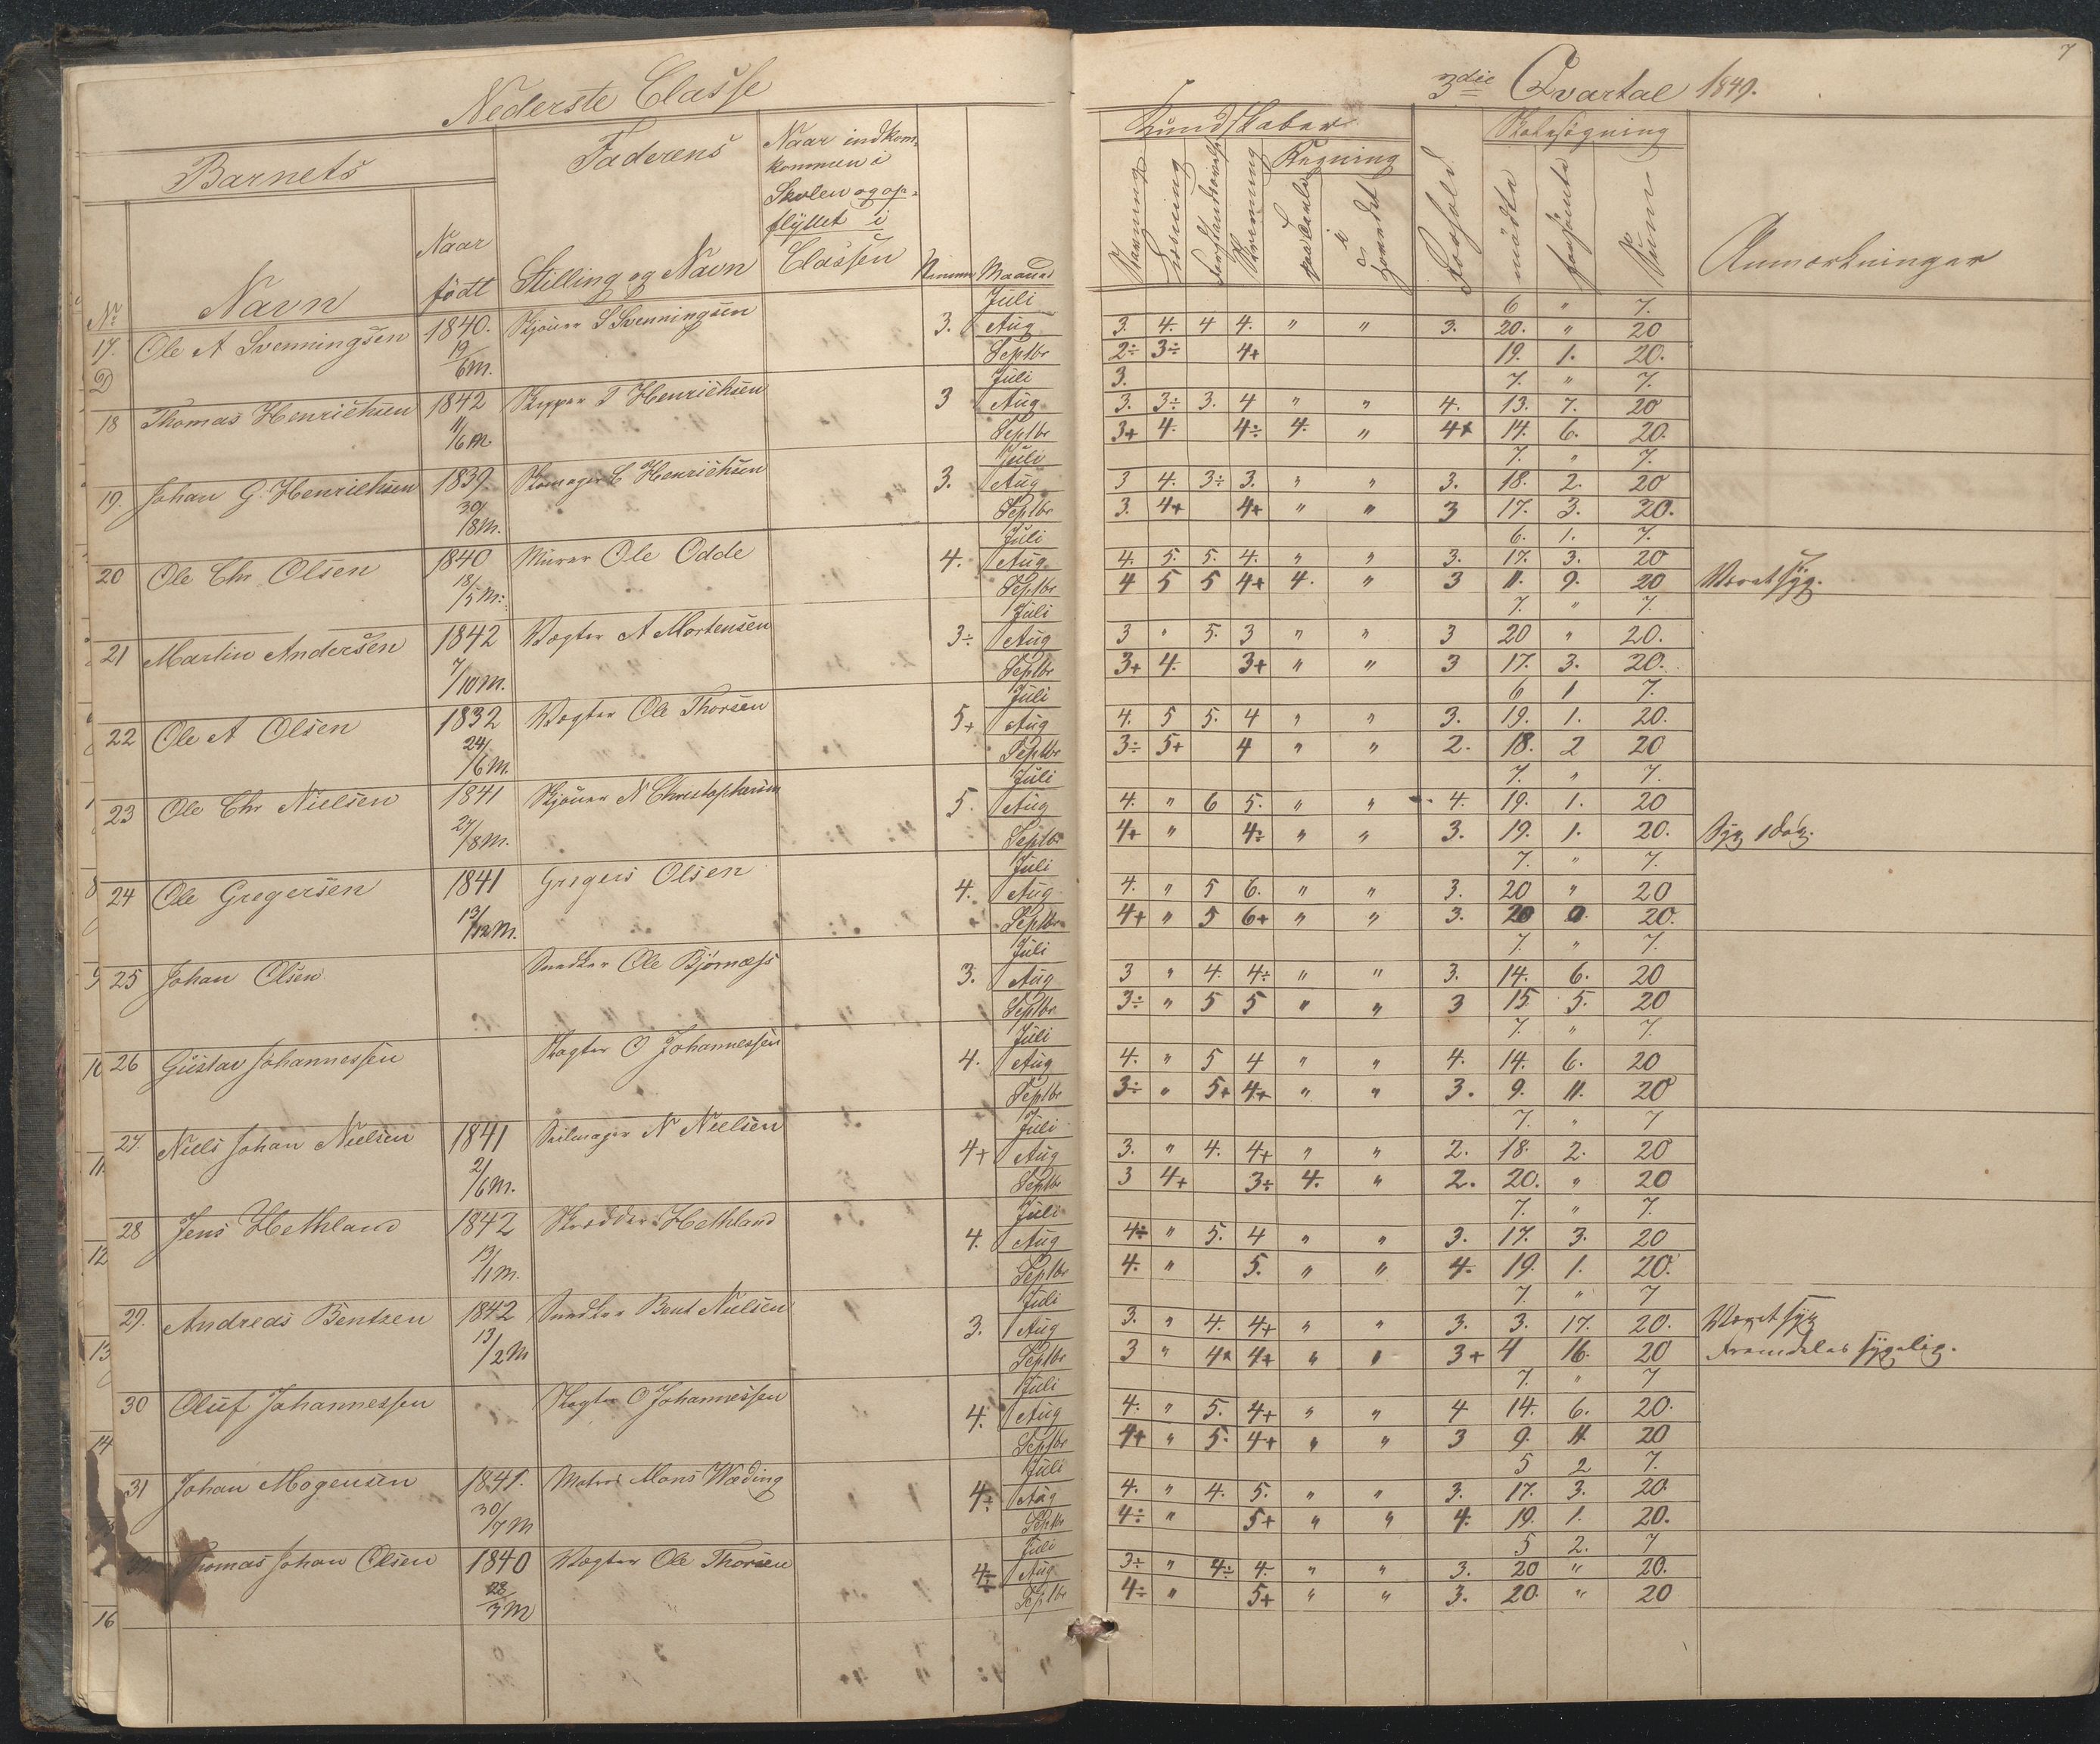 Nederste Classe
Barnets
Faderens
Naar indkom-
kommen i
Skolen og op-
flyttet i
Classen
No
Navn
Naar
födt
Stilling og Navn
Maaned
17. Ole A Svenningsen 1840. 19/6 M. S Svenningsen 3. Juli Aug Septbr
18 Thomas Henrichsen 1842 11/6 M. Skipper T Henrichsen 3 Juli Aug Septbr
19. Johan G. Henrichsen 1839. 30/8 M. Skomager C Henrichsen 3. Juli Aug Septbr
20 Ole Chr Olsen 1840 18/5 M. Murer Ole Odde 4. Juli Aug Septbr
21 Martin Andersen 1842 7/10 M. Vægter A Mortensen 3÷ Juli Aug Septbr
22 Ole A Olsen 1832 24/6 M. Vægter Ole Thorsen 5+ Juli Aug Septbr
23 Ole Chr Nielsen 1841 27/8 M. N Christophersen 5. Juli Aug Septbr
24 Ole Gregersen 1841 13/12 M. Gregers Olsen 4. Juli Aug Septbr
25 Johan Olsen Snedker Ole Bjørnæss 3. Juli Aug Septbr
26 Gustav Johannessen O Johannessen 4. Juli Aug Septbr
27. Niels Johan Nielsen 1841 2/6 M. Seilmager N Nielsen 4+ Juli Aug Septbr
28 Jens Hethland 1842 13/1 M. Skrædder Hethland 4. Juli Aug Septbr
29. Andreas Bentzen 1842 13/2 M Snedker Bent Nielsen 3. Juli Aug Septbr
30 Oluf Johannessen O Johannessen 4. Juli Aug Septbr
31 Johan Mogensen 1841. 30/7 M Matros Mons Wæding 4÷ Juli Aug Septbr
Thomas Johan Olsen 1840 28/3 M Vægter Ole Thorsen 4÷ Juli Aug Septbr
7
3die Qvartal 1849.
Kundskaber
Skolesøgning
Regning
Læsning
Skrivning
paa Tavle
i Hovedet
Forhold
mödte
forsömte
Sum
Anmærkninger
6 " 7.
3. 4. 4 4. " " 3. 20. " 20
2÷ 3÷ 4+ 19. 1. 20.
3. 7. " 7.
3. 3÷ 3. 4 " " 4. 13. 7. 20
3+ 4. 4÷ 4. " 4+ 14. 6. 20.
7. " 7.
3 4. 3÷ 3. " " 3. 18. 2. 20
3. 4+ 4+ " " 3 17. 3. 20.
6. 1. 7.
4. 5. 5. 4. " " 3. 17. 3. 20
4 5 5 4+ 4. " 3 11. 9. 20 Været syg.
7. " 7.
3 " 5. 3 " " 3 20 " 20.
3+ 4. 3+ " " 3 17. 3. 20.
6 1 7.
4. 5 5. 4 " " 3. 19. 1. 20.
3÷ 5+ 4 " " 2. 18. 2 20
7. " 7.
4. " 6 5. " " 4. 19. 1. 20
4+ " 4÷ " " 3. 19. 1. 20. Syg 1 Dag.
7. " 7.
4. " 5 6. " " 3. 20 " 20
4+ " 5 6+ " " 3. 20 0. 20.
7. " 7.
3 " 4. 4÷ " " 3. 14. 6. 20
3÷ " 5 5 " " 3 15 5. 20
7. " 7.
4. " 5 4 " " 4. 14. 6. 20
3÷ " 5+ 4+ " " 3. 9. 11. 20
7. " 7
3. " 4. 4+ " " 2. 18. 2. 20
3 4+ 3÷ 4. " 2. 20. " 20
7. " 7.
4÷ " 5. 4 " " 3. 17. 3. 20
4. " 5. " " 4. 19. 1. 20.
7. " 7
3. " 4. 4+ " " 3. 3. 17. 20. Været syg
3 " 4+ 4+ " " 3+ 4 16. 20 Fremdeles sygelig.
7. " 7
4. " 5. 4+ " " 4 14. 6. 20.
4+ " 5. 4+ " " 3 9. 11. 20
5 2 7.
4. " 4. 5. " " 3. 17. 3. 20.
4÷ " 5+ " " 4. 19. 1. 20.
5 2. 7
3÷ " 4÷ 4. " " 3. 20 " 20.
4÷ " 5+ " " 3. 20. " 20
10
11
12
13
14
16